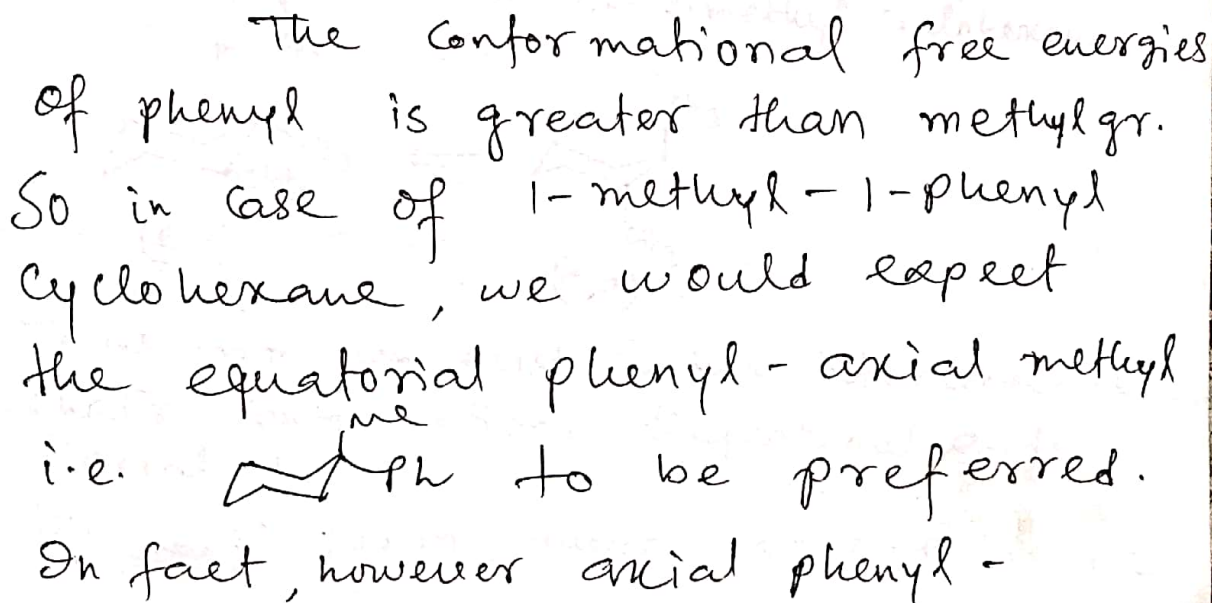 The conformational free energies
of phenyl is greater than methyl gr.
So in case of 1-methyl-1-phenyl
cyclohexane, we would expect
the equatorial phenyl - axial methyl
me
i.e. Ph to be preferred.
In fact, however axial phenyl -